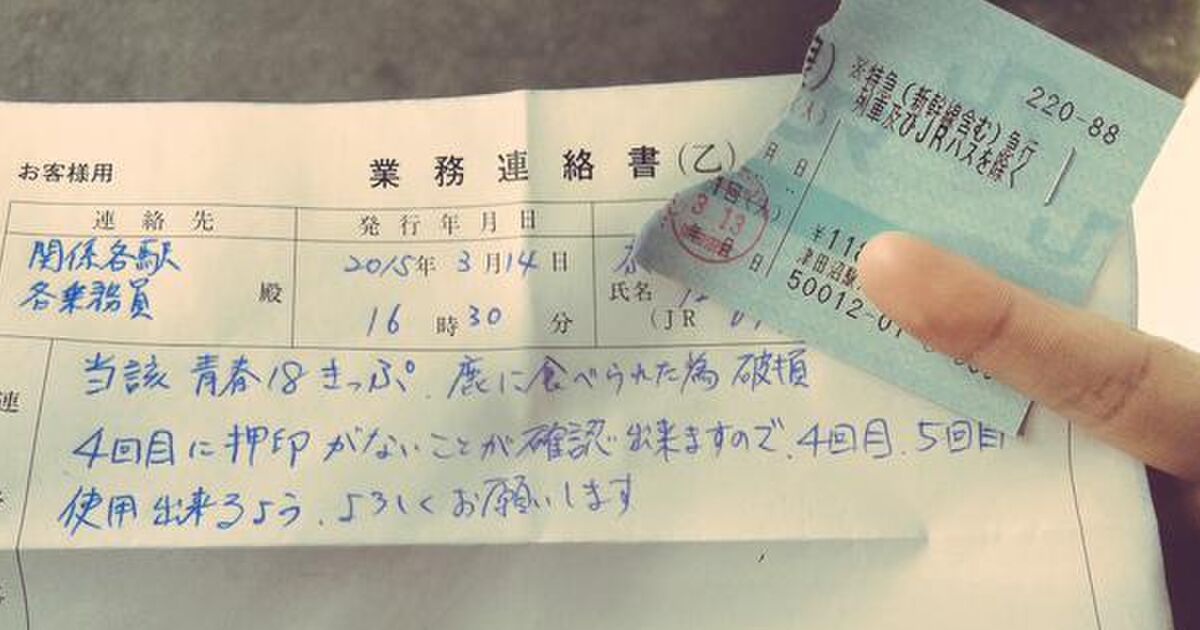 お客様用
業務連絡書(乙)
連絡先
発行年月日
関係各駅
各乗務員
殿
2015年 3月14日
16時30分
氏名
(JR
当該 青春18きっぷ、鹿に食べられた為 破損
4回目に押印がないことが確認出来ますので、4回目、5回目
使用出来るよう、よろしくお願いします
220-88
※特急(新幹線含む)急行
列車及びJRバスを除く
月 日
3.13
¥118
津田沼駅
50012-01